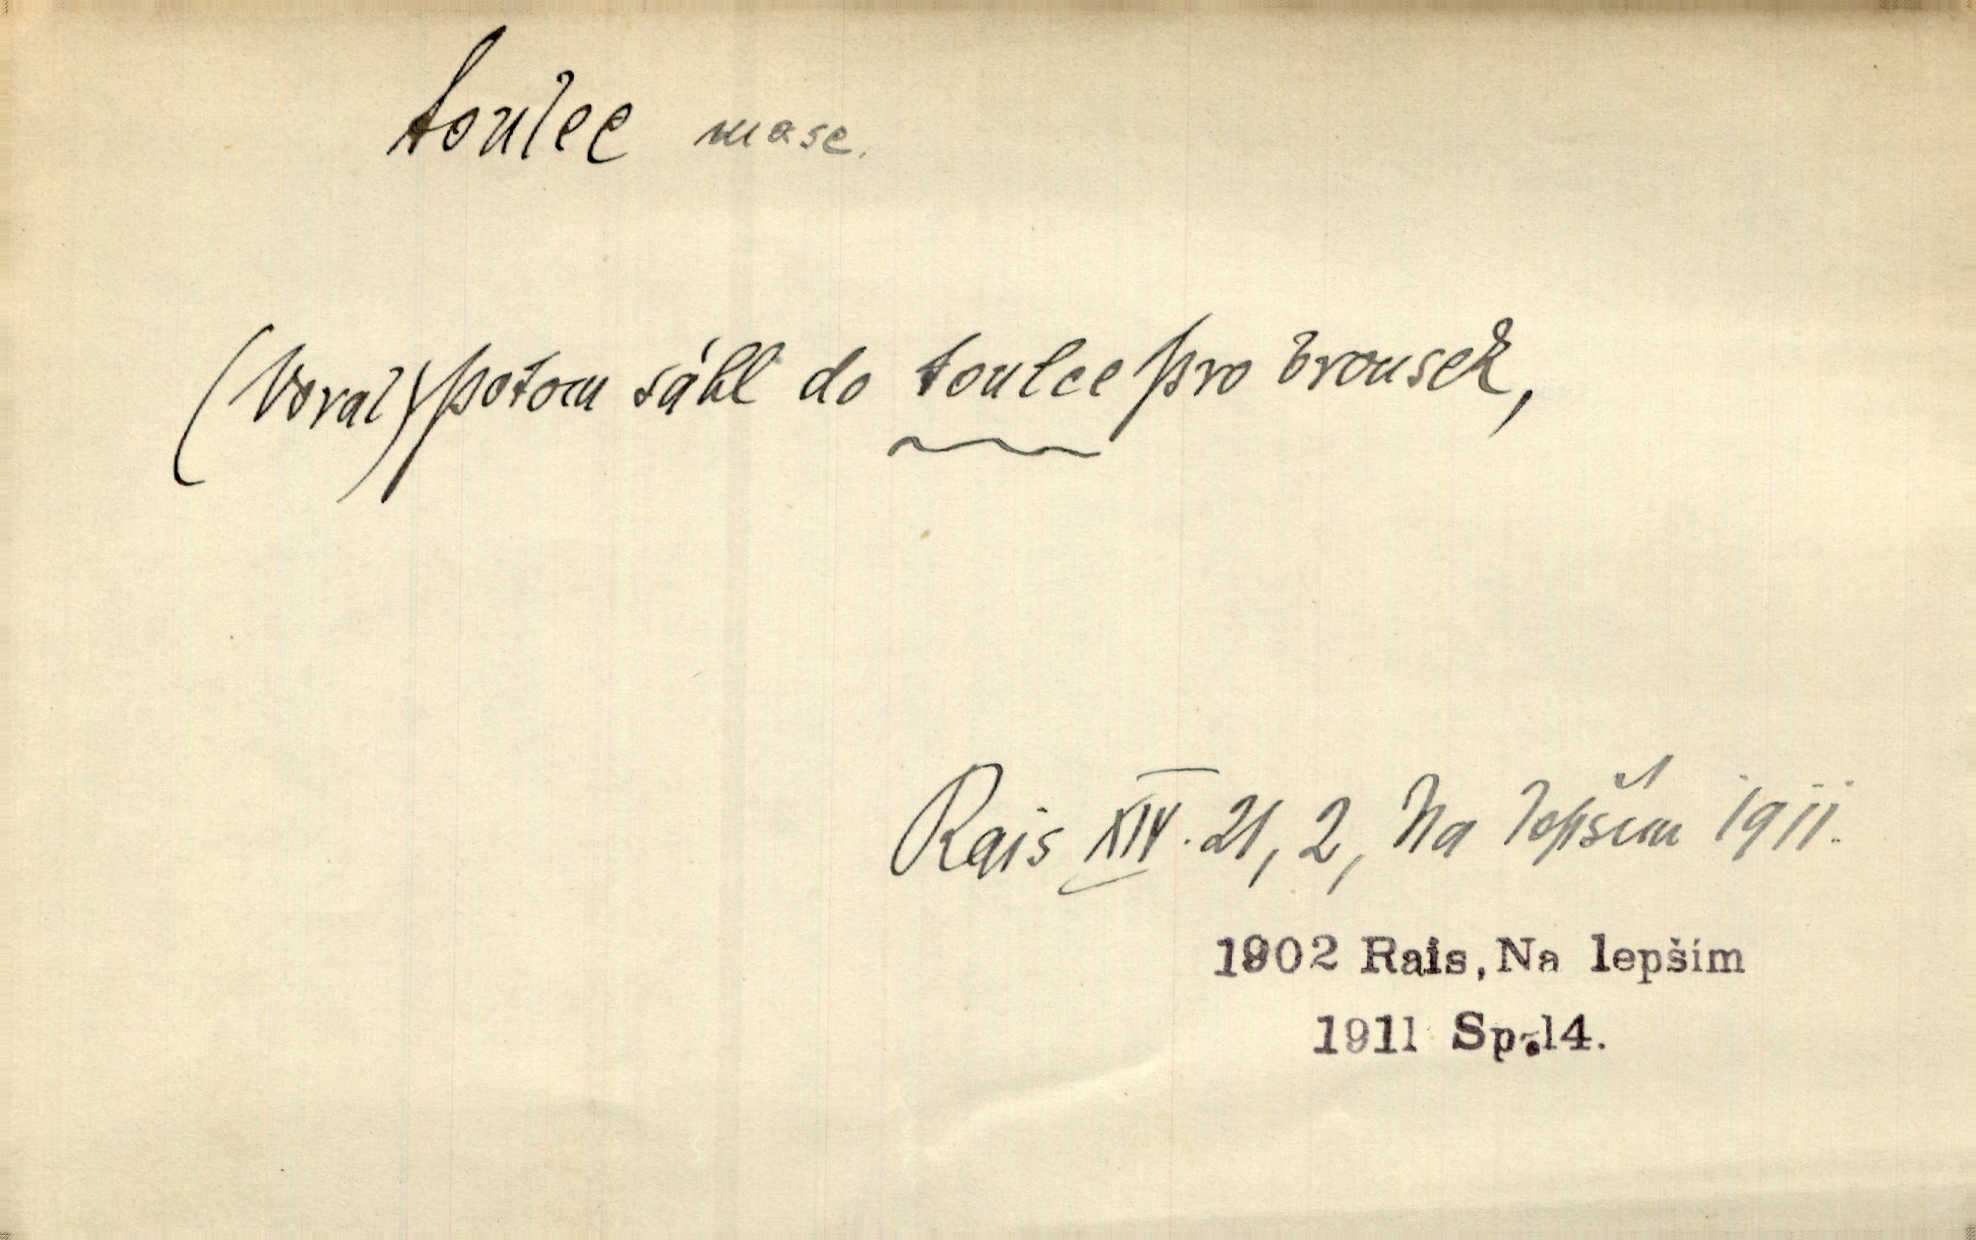 toulec masc.
(Voral) potom sáhl do toulce pro brousek,
Rais XIV. 21, 2, Na lepším 1911.
1902 Rais, Na lepším
1911 Sp. 14.